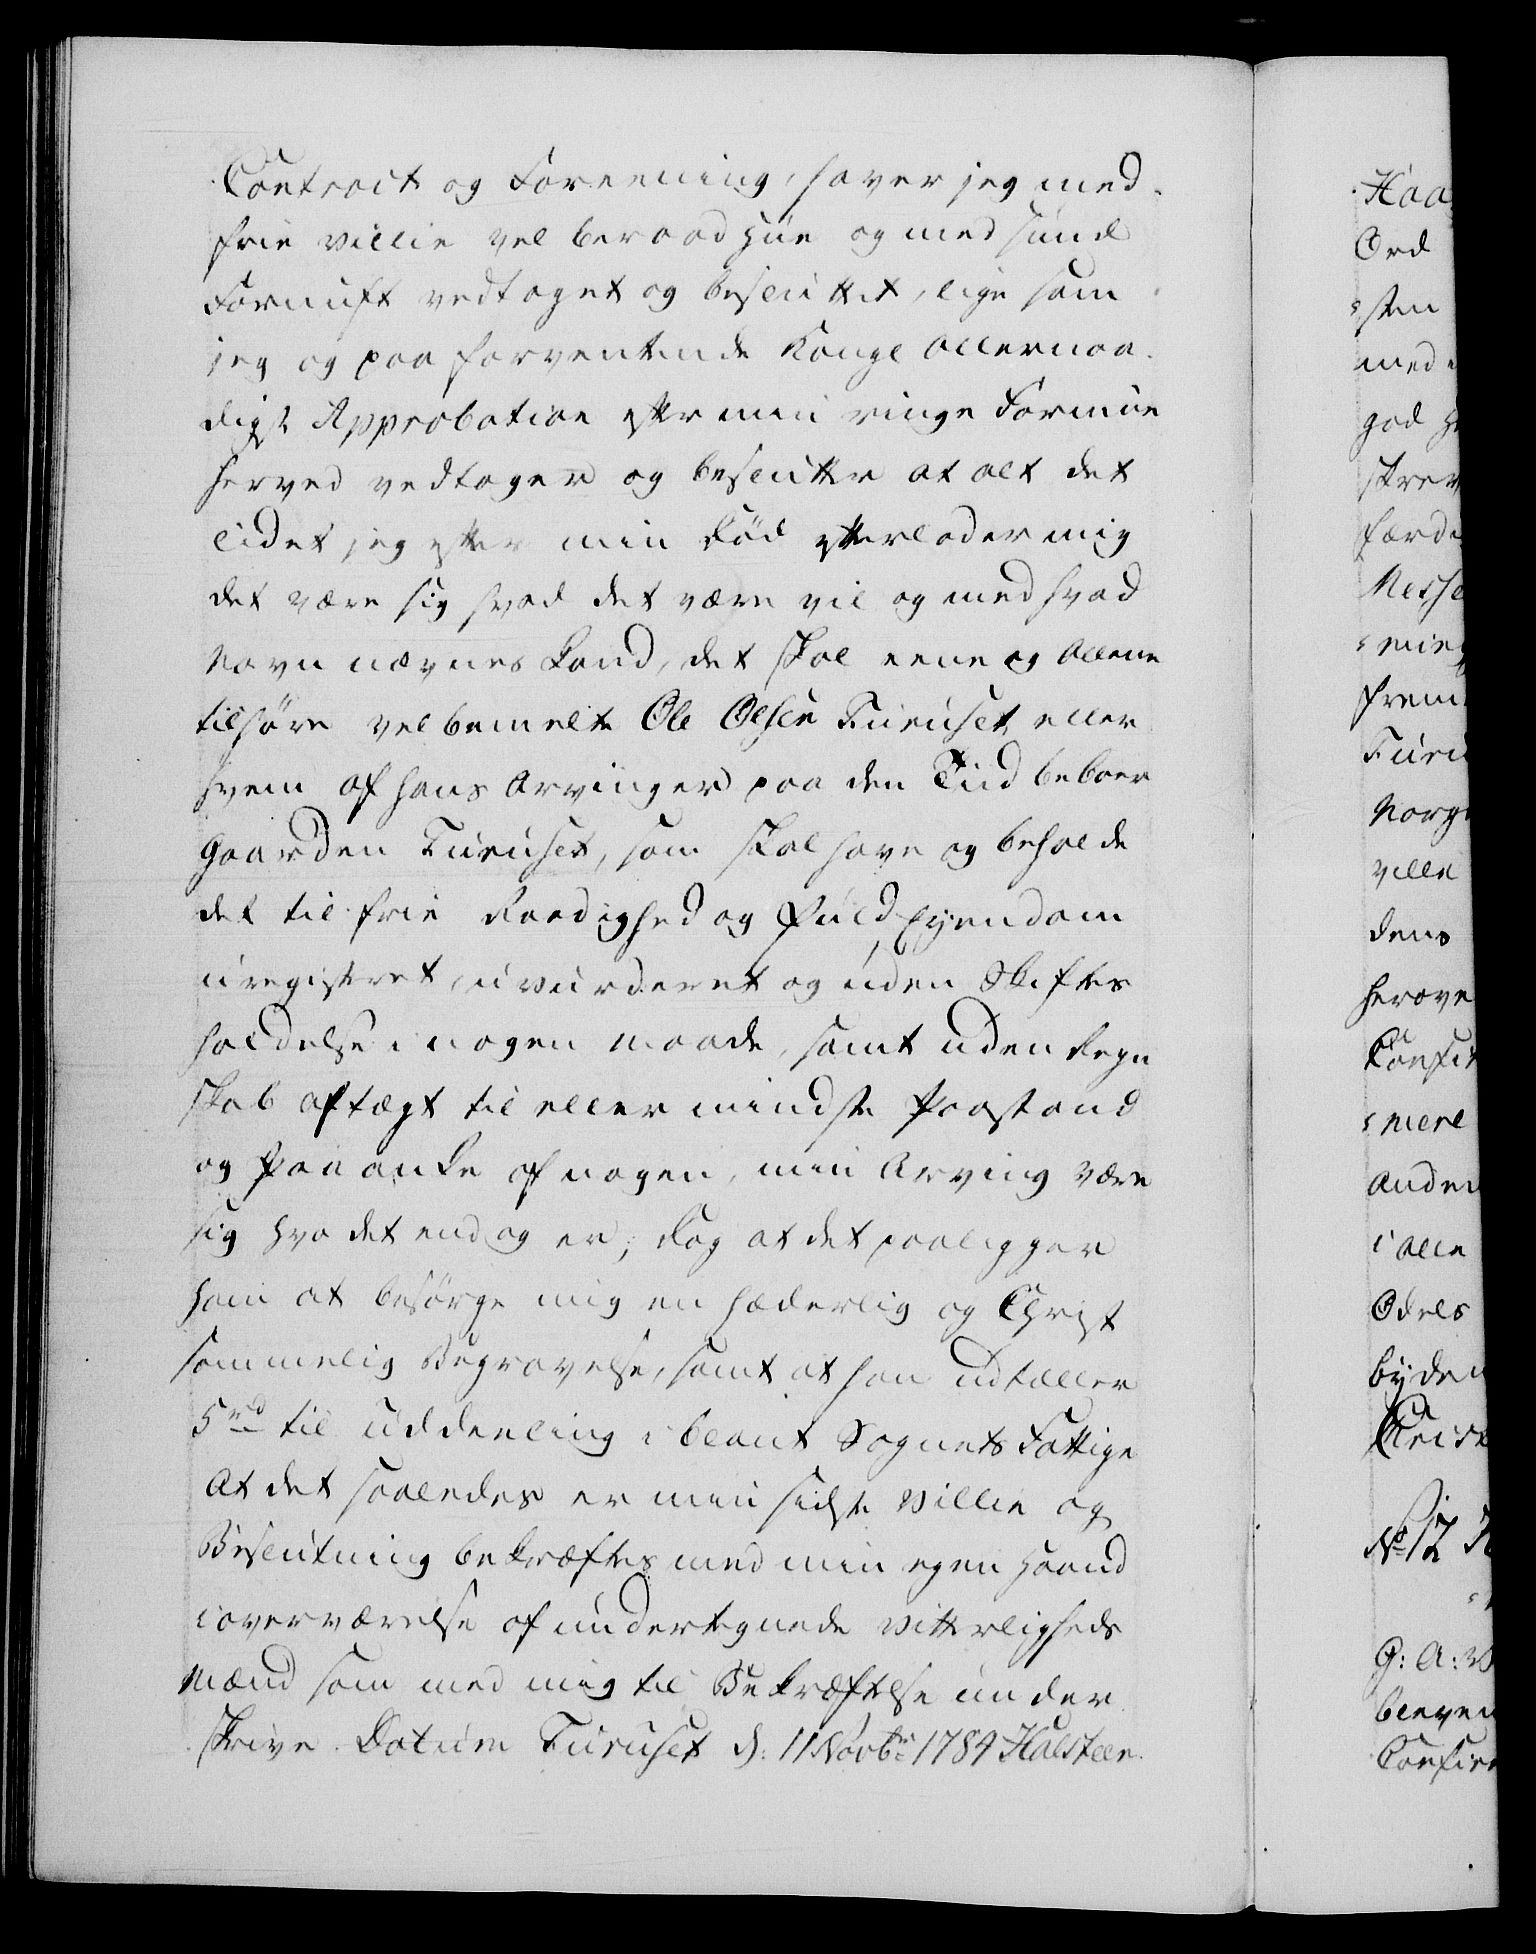 Contract og Foreening, haver jeg med
frie villie vel beraad Hue og med sund
Fornuft vedtaget og besluttet, lige som
jeg og paa forventende Kongl Allernaa
digst Approbation efter min ringe Formue
herved vedtager og beslutter at alt det
lidet jeg efter min Död efterlader mig
det være sig hvad det være vil og med hvad
Navn nævnes kand, det skal eene og Allene
tilhöre velbemelte Ole Olsen Furuset eller
hvem af hans Arvinger paa den Tiid beboer
Gaarden Furuset, som skal have og beholde
det til frie Raadighed og fuld Eyendom
uregistreret, uvurderet og uden Skiftes
holdelse i nogen maade, samt uden Regn
skab aflægt til eller mindste Paastand
og Paaanke af nogen, min Arving være
sig hvo det end og er; dog at det paaligger
ham at besörge mig en hæderlig og Christ
sommelig Begravelse, samt at han udtæller
5rd til uddeeling i blant Sognets Fattige
At det saaledes er min sidste Villie og
Beslutning bekræftes med min egen Haand
i overværelse af undertegnede Vitterligheds
Mænd som med mig til Bekræftelse under
skrive. Datum Furuset d: 11 Novbr 1784 Halsteen
Haa
Ord
sten
med
god
skrev
færdi
Messe
frem
Furu
Norge
ville
dens
herove
Confir
mere
anden
i alle
Odels
byden
Christ
No 12
G: A:
bleven
Confir